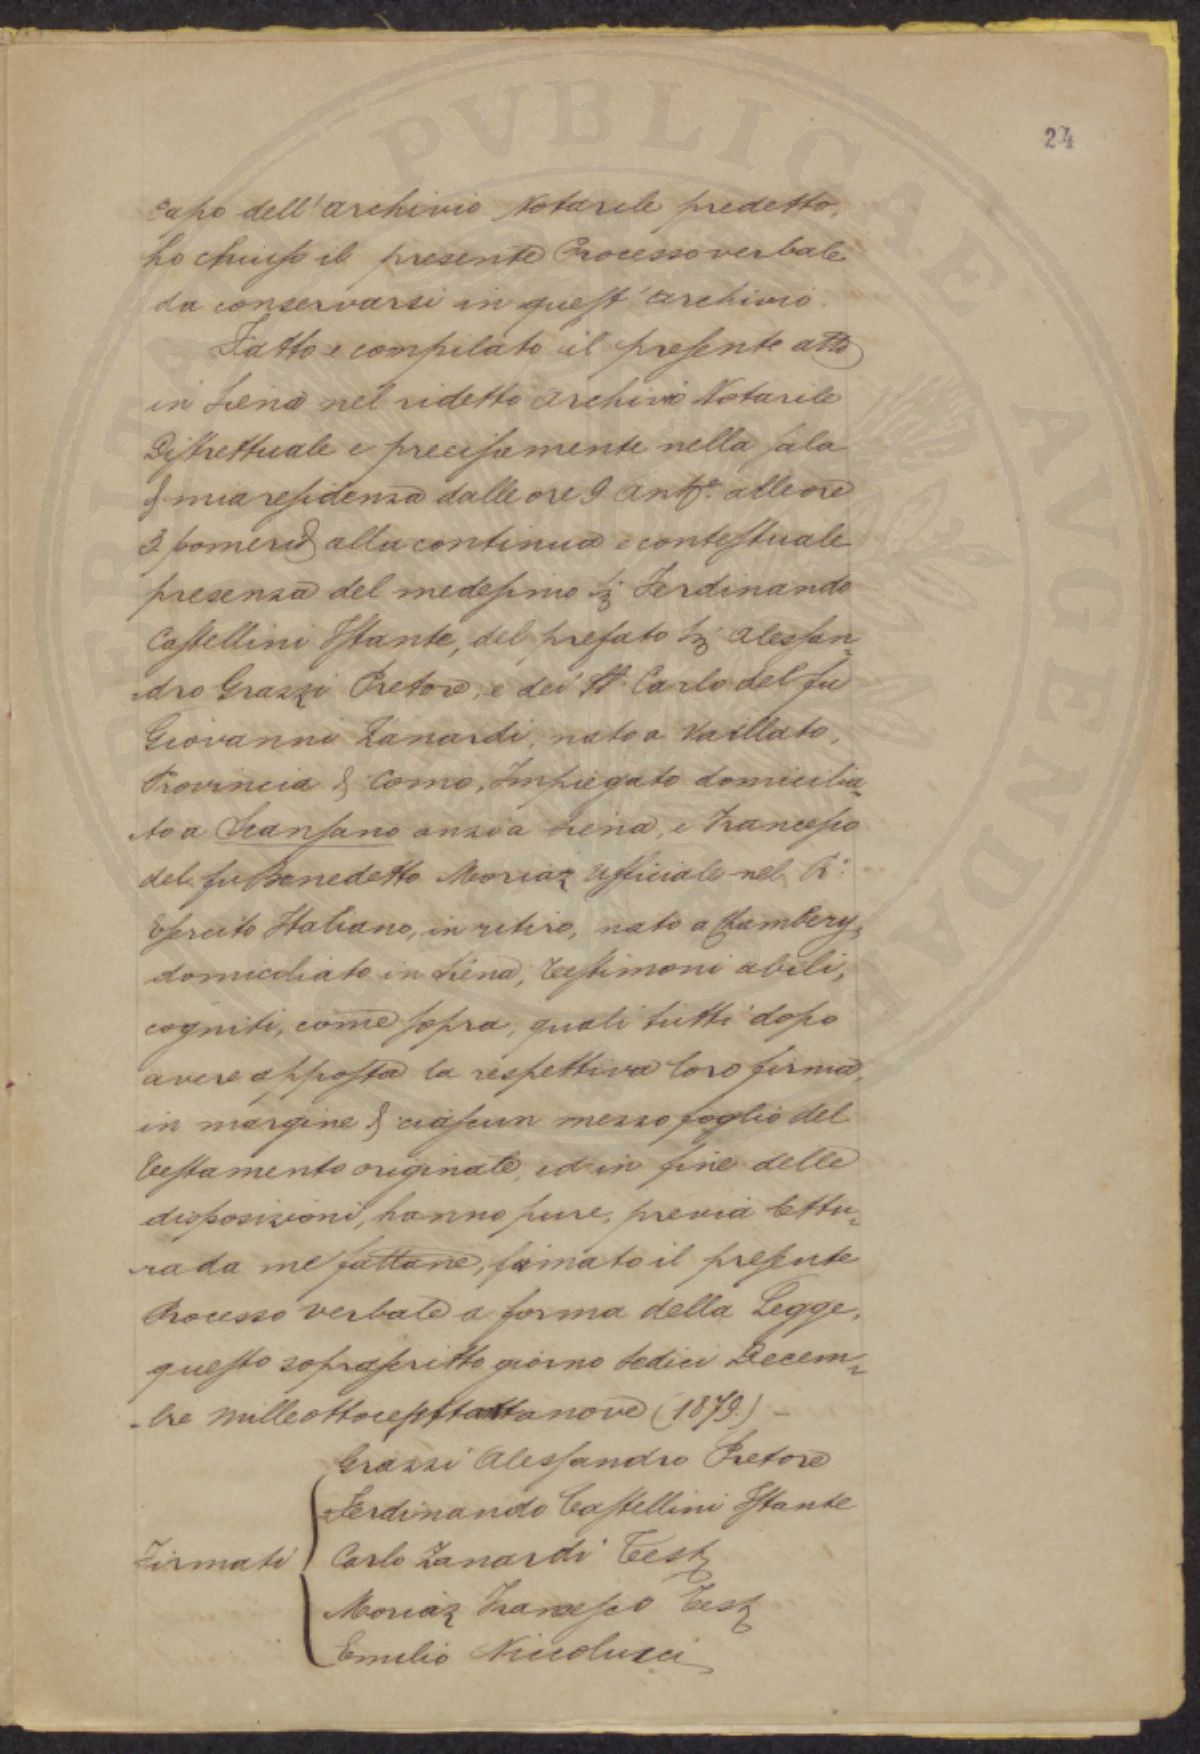 24
capo dell'archivio Notarile predetto,
ho chiuso il presente Processo verbale
da conservarsi in quest'archivio.
Fatto e compilato il presente atto
in Siena nel ridetto archivio Notarile
Distrettuale e precisamente nella sala
di mia residenza dalle ore 9 antᵉ. alle ore
3 pomerid alla continua e contestuale
presenza del medesimo Sig Ferdinando
Castellini Istante, del prefato Sig Alessan=
=dro Grazzi Pretore, e dei SS. Carlo del fu
Giovanni Zanardi, nato a Vaillate,
Provincia di Como, Impiegato domicilia=
=to a Scansano anzi a Siena, e Francesco
del fu Benedetto Moriaz Ufficiale nel R.
Esercito Italiano, in ritiro, nato a Chambery,
domiciliato in Siena, testimoni abili,
cogniti, come sopra, quali tutti dopo
avere apposta la respettiva loro firma,
in margine di ciascun mezzo foglio del
testamento originale, ed in fine delle
disposizioni, hanno pure, previa lettu=
=ra da me fattane, firmato il presente
Processo verbale a forma della Legge,
questo soprascritto giorno sedici Decem=
=bre milleottocentosettantanove (1879.) –
Grazzi Alessandro Pretore
Ferdinando Castellini Istante
Firmati Carlo Zanardi Test
Moriaz Francesco Test
Emilio Niccolucci
PVBLICAE AVGENDAE